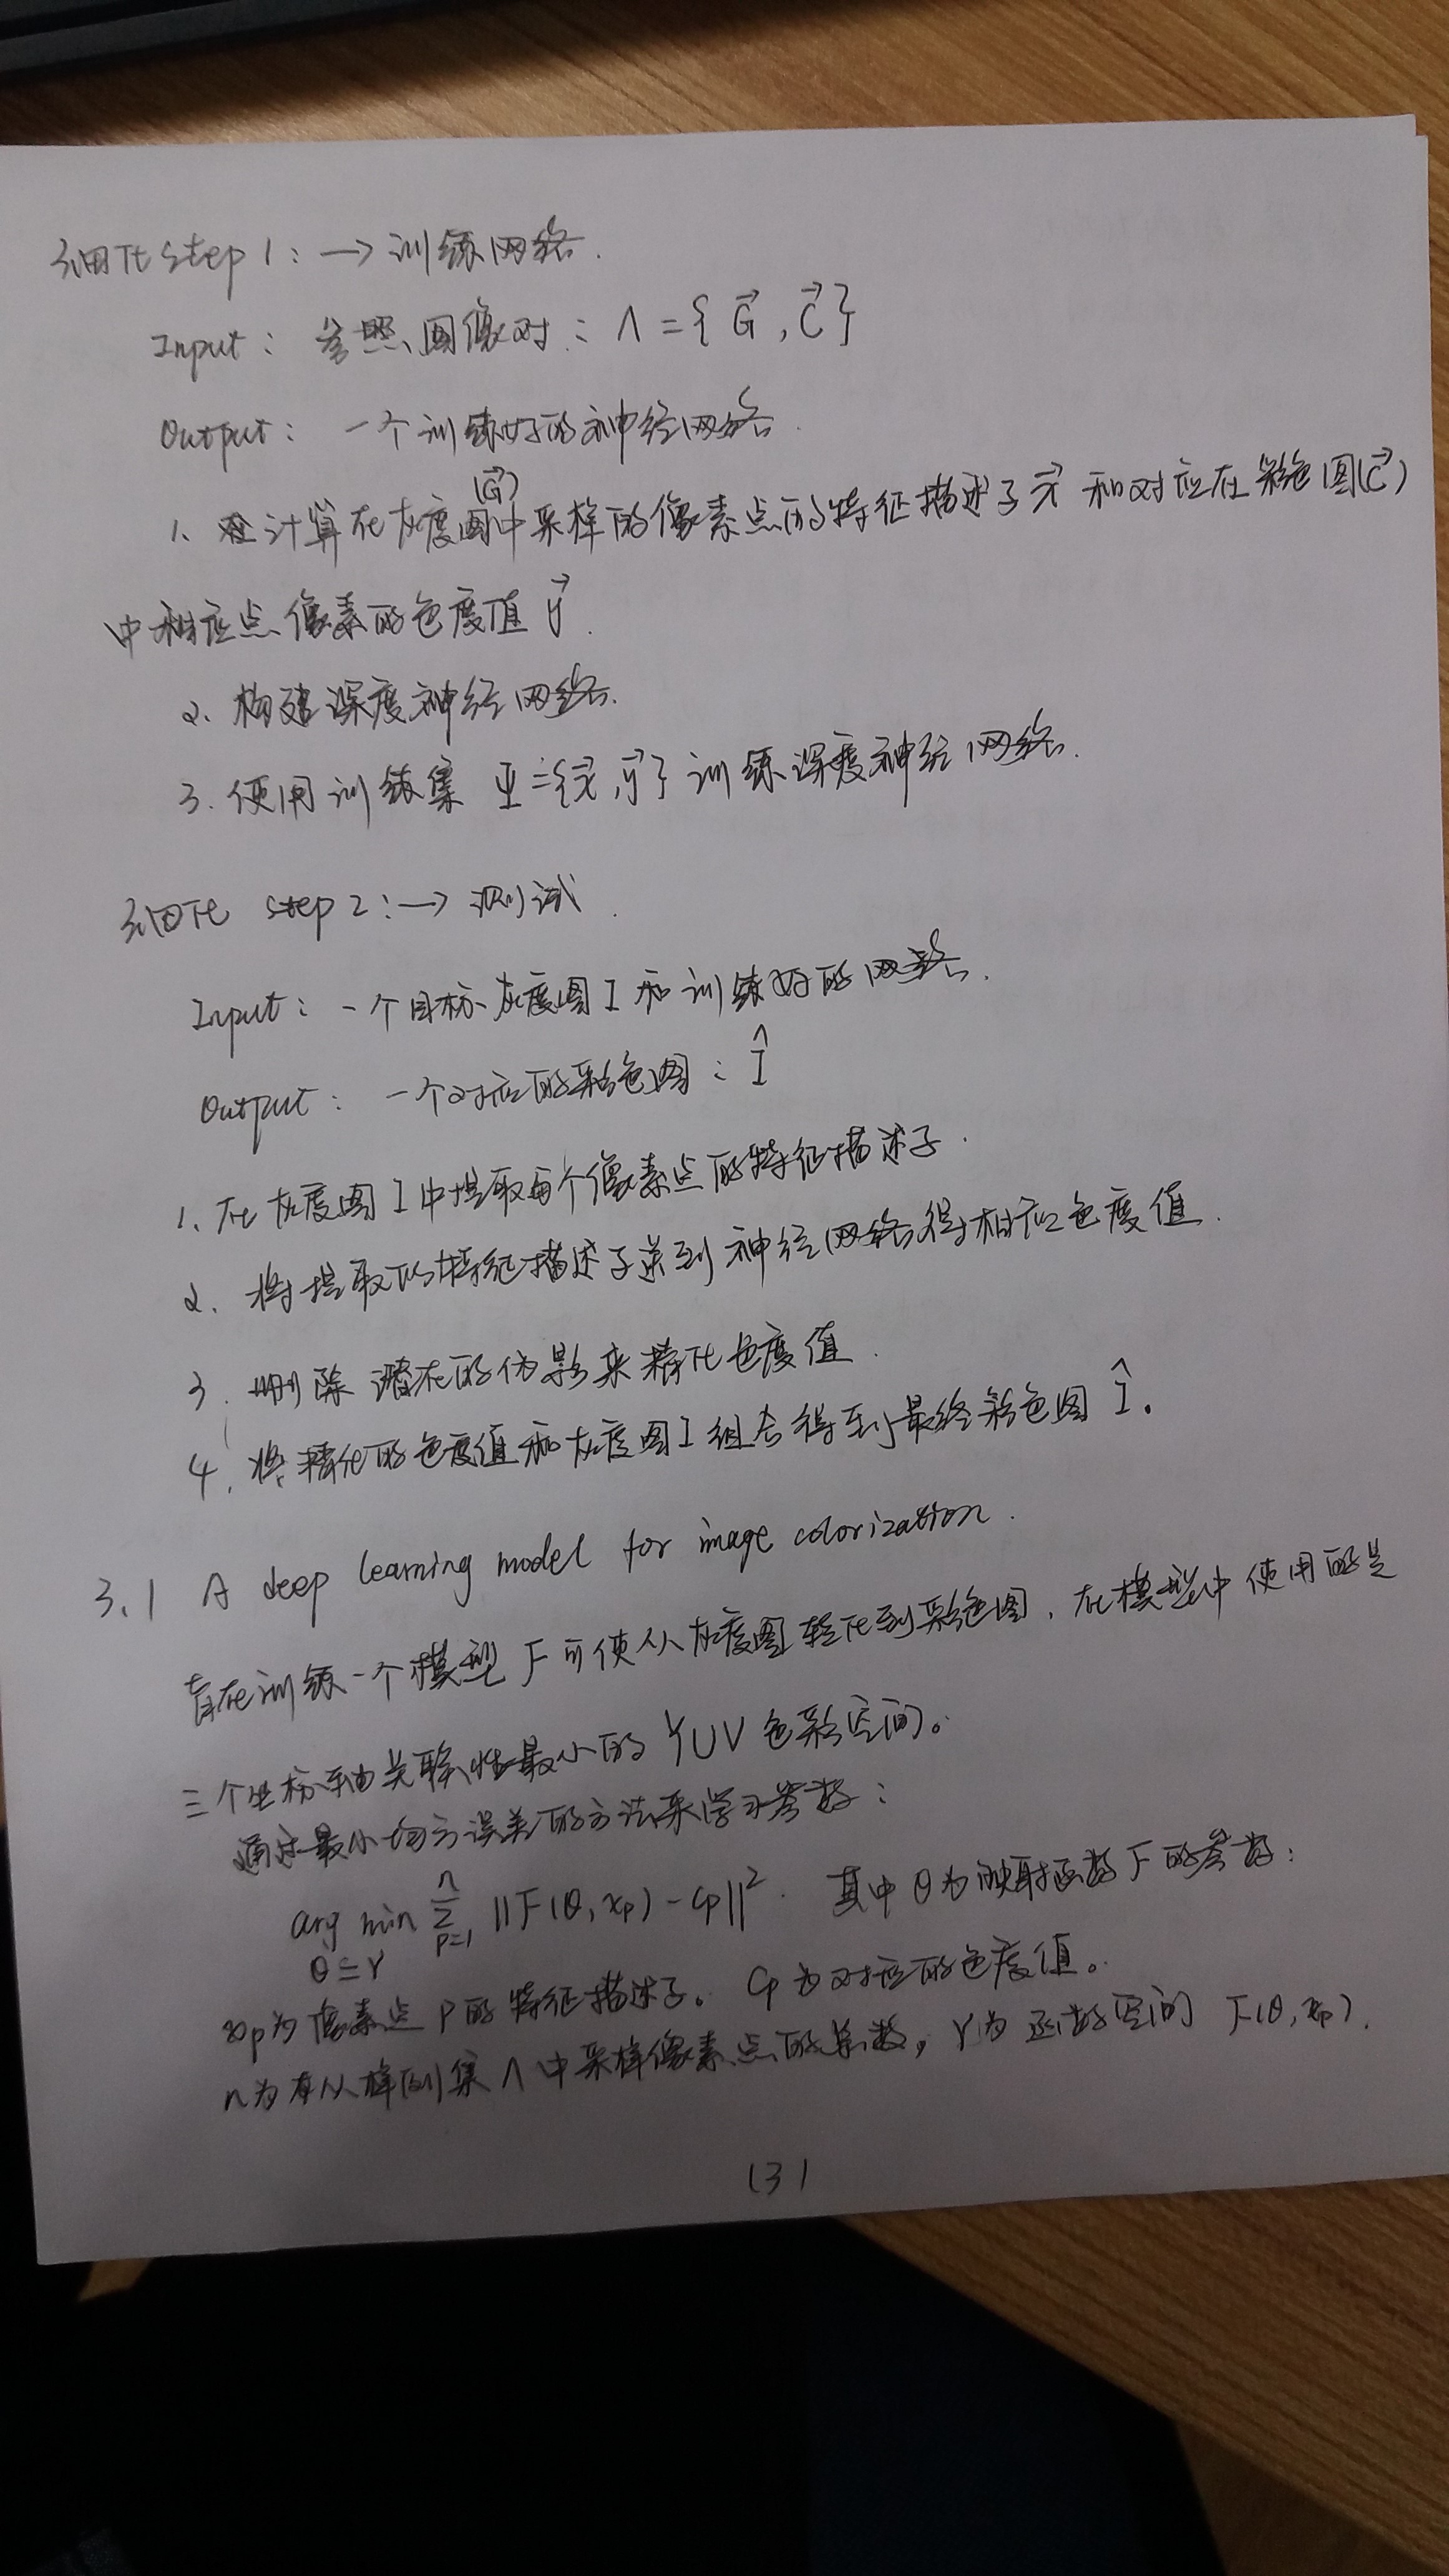 细化step 1：→ 训练网络.
Input： 参照图像对： Λ = { G⃗ , C⃗ }
Output： 一个训练好的神经网络.
1、计算在灰度图(G⃗)中采样的像素点的特征描述子 x⃗ 和对应在彩色图(C⃗)
中相应点像素的色度值 y⃗ .
2、构建深度神经网络.
3. 使用训练集 Ψ = {x⃗, y⃗} 训练深度神经网络.
细化 step 2：→ 测试.
Input： 一个目标灰度图 I 和训练好的网络.
Output： 一个对应的彩色图： Î
1、在灰度图 I 中提取每个像素点的特征描述子.
2、将提取的特征描述子送到神经网络得相应色度值.
3. 删除潜在的伪影来精化色度值.
4. 将精化的色度值和灰度图 I 组合得到最终彩色图 Î。
3.1 A deep learning model for image colorization.
存在训练一个模型 F 可使从灰度图转化到彩色图. 在模型中使用的是
三个坐标轴关联性最小的 YUV 色彩空间。
通过最小均方误差的方法来学习参数：
arg min Σ ||F(θ, xp) - cp||² . 其中 θ 为映射函数 F 的参数；
θ ⊆ Υ p=1 n
xp为像素点 p 的特征描述子。 cp 为对应的色度值。
n为从样例集 Λ 中采样像素点的总数， Υ为函数空间 F(θ, xp).
(3)